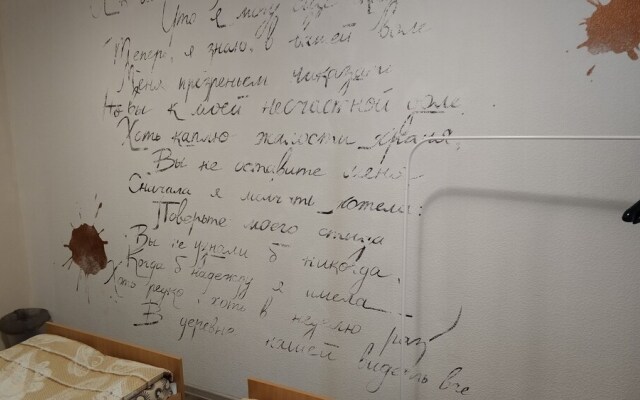 Что я могу еще
Теперь, я знаю, в вашей воле
Меня презреньем наказать
Но вы к моей несчастной доле
Хоть каплю жалости храня,
Вы не оставите меня
Сначала я молчать хотела:
Поверьте моего стыда
Вы не узнали б никогда,
Когда б надежду я имела
Хоть редко, хоть в неделю раз
В деревне нашей видеть вас